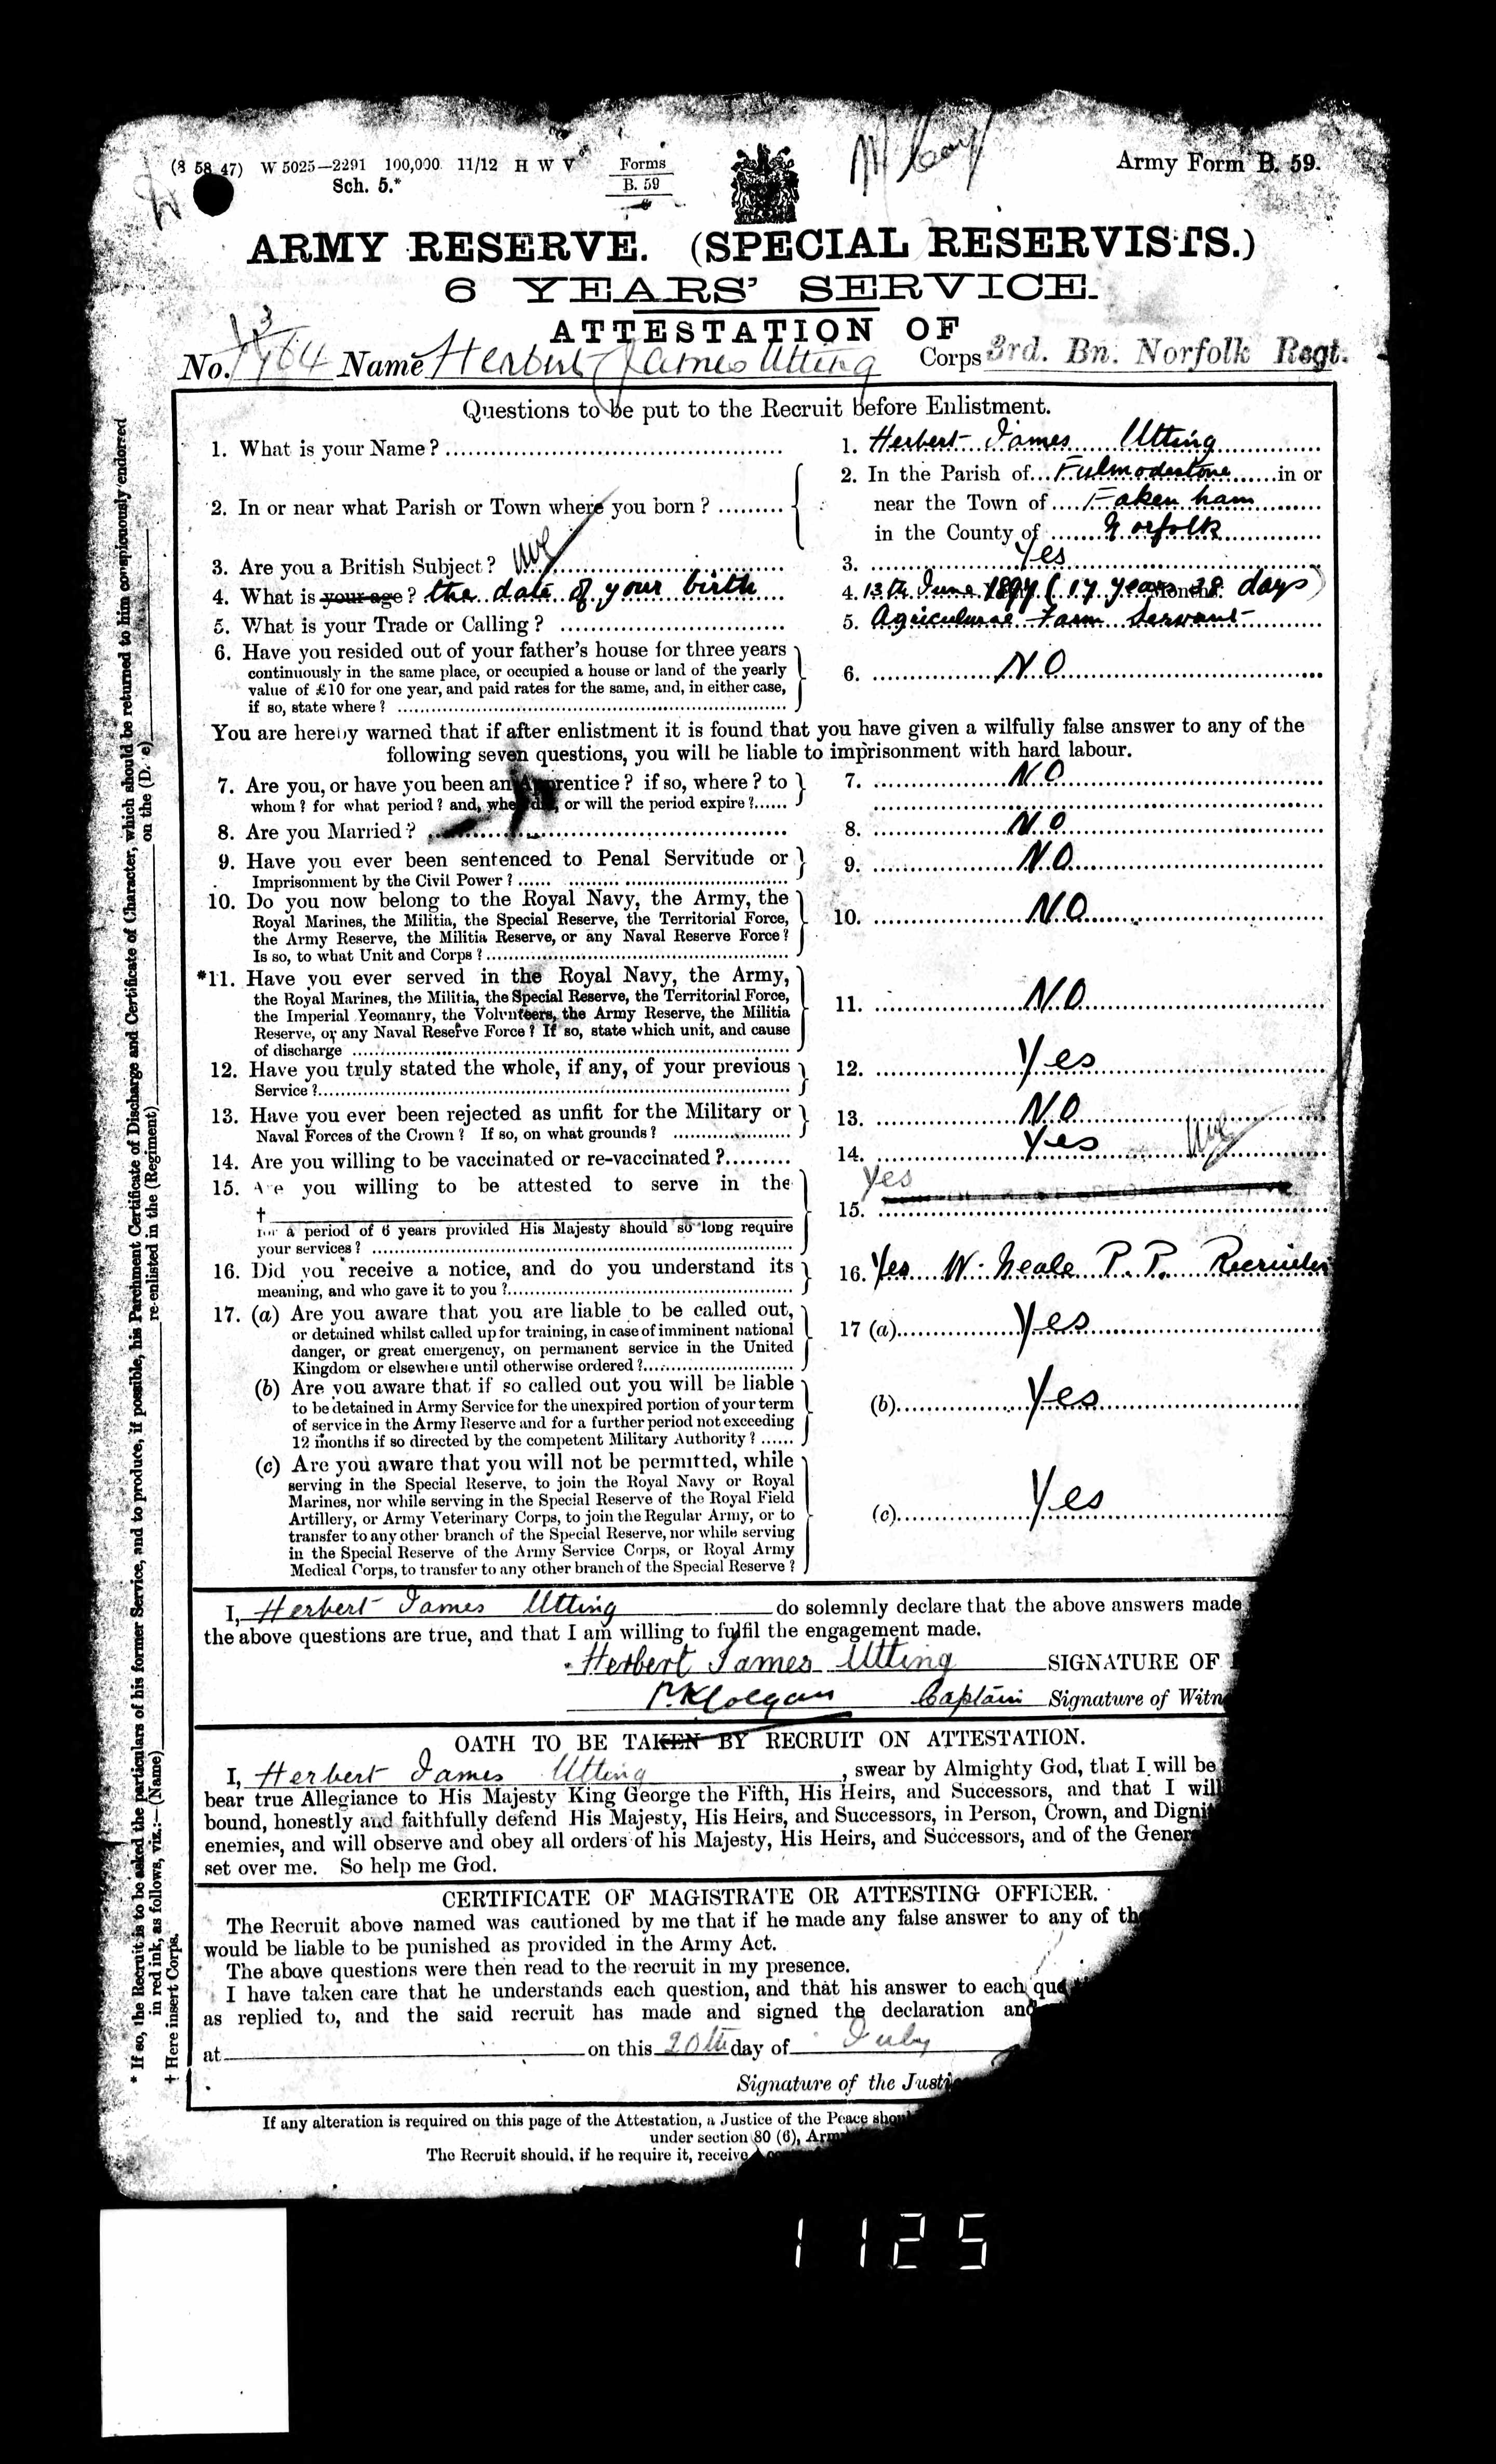 (8 58 47) W 5025—2291 100,000 11/12 H W V Forms Army Form B. 59.
Sch. 5.* B. 59
ARMY RESERVE. (SPECIAL RESERVISTS.)
6 YEARS' SERVICE.
ATTESTATION OF
No. Name Herbert James Utting Corps 3rd. Bn. Norfolk Regt.
Questions to be put to the Recruit before Enlistment.
1. What is your Name? 1. Herbert James Utting
2. In or near what Parish or Town where you born? 2. In the Parish of Fulmodestone in or
near the Town of Fakenham
in the County of Norfolk
3. Are you a British Subject? 3. Yes
4. What is your age? the date of your birth 4. 13th June 1897 (17 years 38 days)
5. What is your Trade or Calling? 5. Agricultural Farm Servant
6. Have you resided out of your father's house for three years
continuously in the same place, or occupied a house or land of the yearly 6. NO
value of £10 for one year, and paid rates for the same, and, in either case,
if so, state where?
You are hereby warned that if after enlistment it is found that you have given a wilfully false answer to any of the
following seven questions, you will be liable to imprisonment with hard labour.
7. Are you, or have you been an Apprentice? if so, where? to 7. NO
whom? for what period? and, when did, or will the period expire?
8. Are you Married? 8. NO
9. Have you ever been sentenced to Penal Servitude or 9. NO
Imprisonment by the Civil Power?
10. Do you now belong to the Royal Navy, the Army, the
Royal Marines, the Militia, the Special Reserve, the Territorial Force, 10. NO
the Army Reserve, the Militia Reserve, or any Naval Reserve Force?
Is so, to what Unit and Corps?
*11. Have you ever served in the Royal Navy, the Army,
the Royal Marines, the Militia, the Special Reserve, the Territorial Force, 11. NO
the Imperial Yeomanry, the Volunteers, the Army Reserve, the Militia
Reserve, or any Naval Reserve Force? If so, state which unit, and cause
of discharge
12. Have you truly stated the whole, if any, of your previous 12. Yes
Service?
13. Have you ever been rejected as unfit for the Military or 13. NO
Naval Forces of the Crown? If so, on what grounds?
14. Are you willing to be vaccinated or re-vaccinated? 14. Yes
15. Are you willing to be attested to serve in the Yes
† 15.
for a period of 6 years provided His Majesty should so long require
your services?
16. Did you receive a notice, and do you understand its 16. Yes W. Neale P.P. Recruiter
meaning, and who gave it to you?
17. (a) Are you aware that you are liable to be called out,
or detained whilst called up for training, in case of imminent national 17 (a) Yes
danger, or great emergency, on permanent service in the United
Kingdom or elsewhere until otherwise ordered?
(b) Are you aware that if so called out you will be liable
to be detained in Army Service for the unexpired portion of your term (b) Yes
of service in the Army Reserve and for a further period not exceeding
12 months if so directed by the competent Military Authority?
(c) Are you aware that you will not be permitted, while
serving in the Special Reserve, to join the Royal Navy or Royal
Marines, nor while serving in the Special Reserve of the Royal Field
Artillery, or Army Veterinary Corps, to join the Regular Army, or to (c) Yes
transfer to any other branch of the Special Reserve, nor while serving
in the Special Reserve of the Army Service Corps, or Royal Army
Medical Corps, to transfer to any other branch of the Special Reserve?
I, Herbert James Utting do solemnly declare that the above answers made
the above questions are true, and that I am willing to fulfil the engagement made.
Herbert James Utting SIGNATURE OF
Captain Signature of Witn
OATH TO BE TAKEN BY RECRUIT ON ATTESTATION.
I, Herbert James Utting, swear by Almighty God, that I will be
bear true Allegiance to His Majesty King George the Fifth, His Heirs, and Successors, and that I will
bound, honestly and faithfully defend His Majesty, His Heirs, and Successors, in Person, Crown, and Digni
enemies, and will observe and obey all orders of his Majesty, His Heirs, and Successors, and of the Gener
set over me. So help me God.
CERTIFICATE OF MAGISTRATE OR ATTESTING OFFICER.
The Recruit above named was cautioned by me that if he made any false answer to any of th
would be liable to be punished as provided in the Army Act.
The above questions were then read to the recruit in my presence.
I have taken care that he understands each question, and that his answer to each que
as replied to, and the said recruit has made and signed the declaration and
at on this 20th day of July
Signature of the Justi
If any alteration is required on this page of the Attestation, a Justice of the Peace shou
under section 80 (6), Arm
The Recruit should, if he require it, receive
* If so, the Recruit is to be asked the particulars of his former Service, and to produce, if possible, his Parchment Certificate of Discharge and Certificate of Character, which should be returned to him conspicuously endorsed
in red ink, as follows, viz.:—(Name) re-enlisted in the (Regiment) on the (Date)
† Here insert Corps.
1125